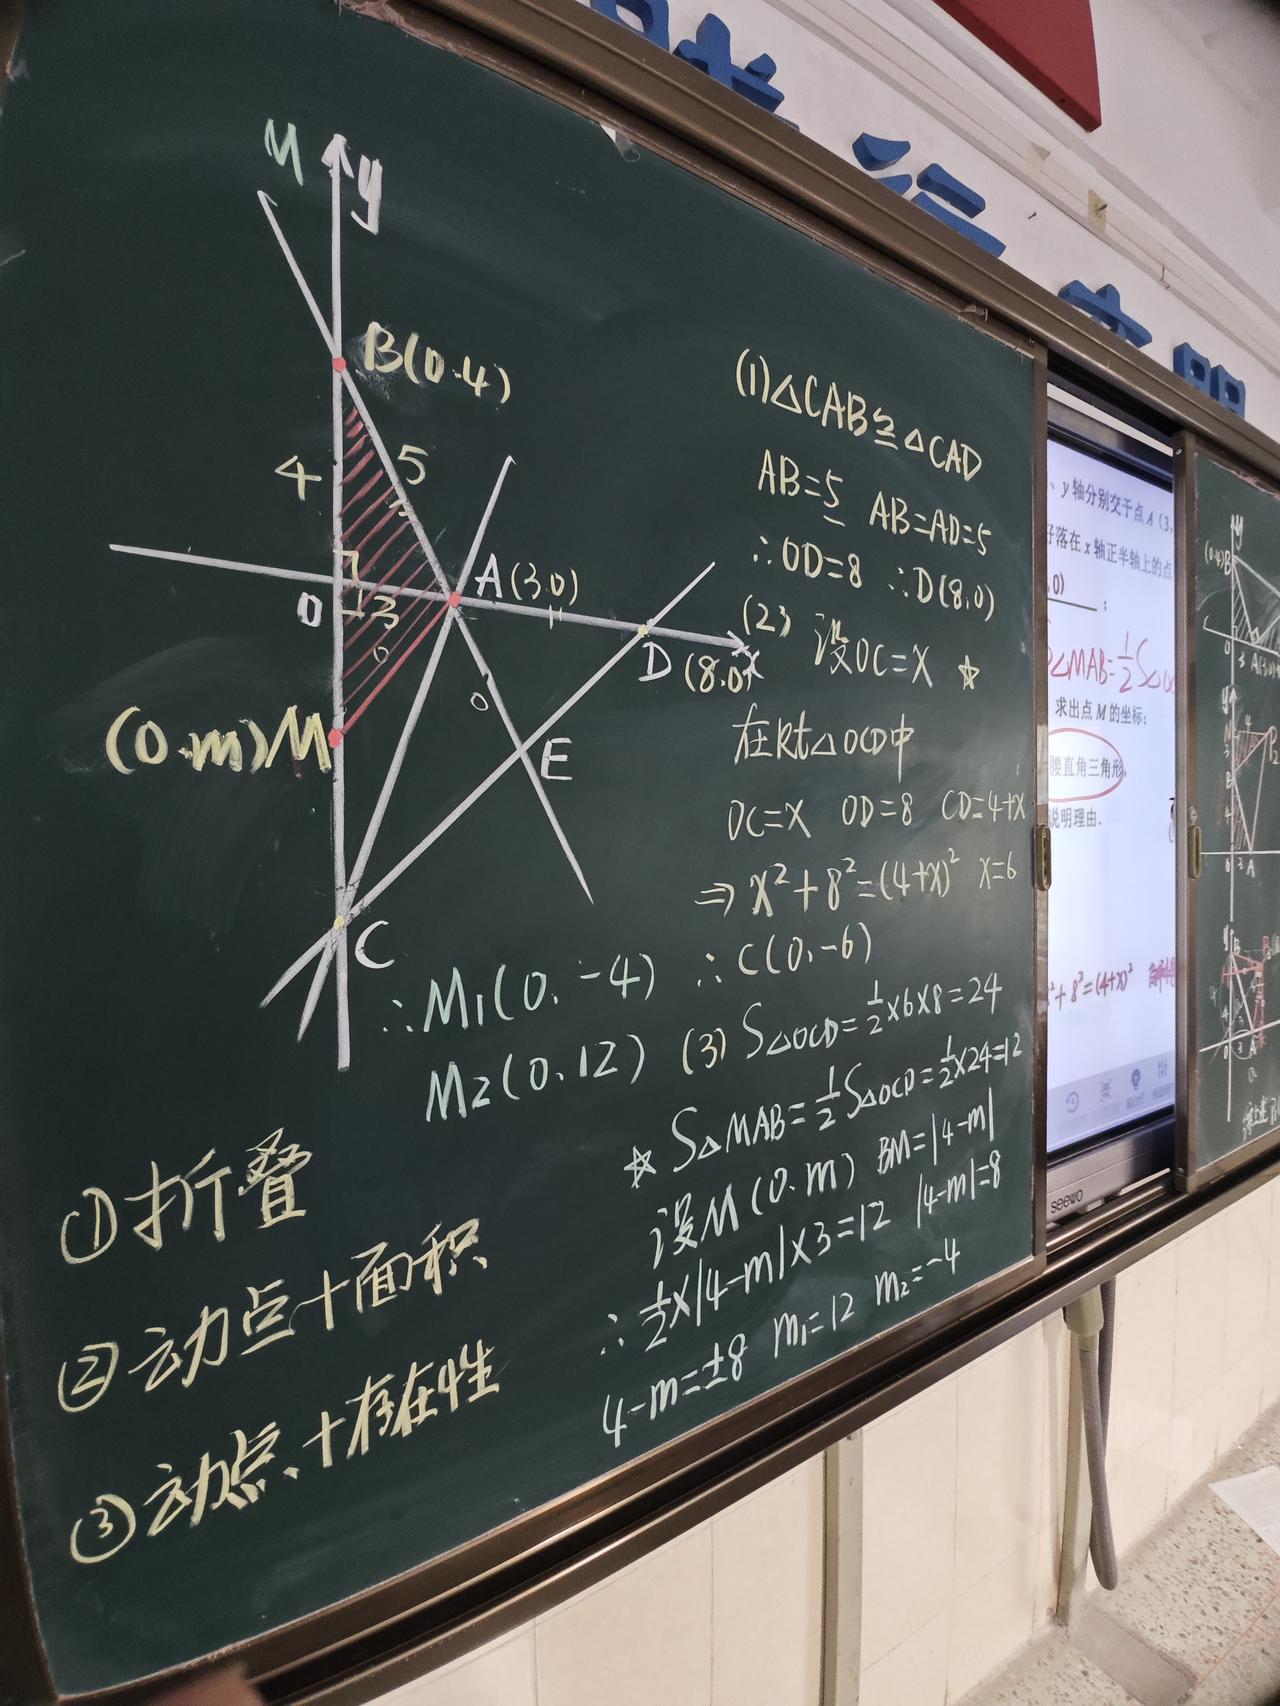 M
y
B(0.4)
4
5
A(3.0)
O
3
D
(8.0)
x
(0.m)M
E
C
(1)△CAB≌△CAD
AB=5 AB=AD=5
∴OD=8 ∴D(8,0)
(2) 设OC=x ☆
在Rt△OCD中
OC=x OD=8 CD=4+x
⇒ x²+8²=(4+x)² x=6
∴C(0,-6)
(3) S△OCD=½×6×8=24
☆ S△MAB=½S△OCD=½×24=12
设M(0.m) BM=|4-m|
∴½×|4-m|×3=12 |4-m|=8
4-m=±8 m₁=12 m₂=-4
∴M1(0.-4)
M2(0.12)
①折叠
②动点+面积
③动点、+存在性
、y轴分别交于点A(3,
好落在x轴正半轴上的点
,0)
;
△MAB=½S△
求出点M的坐标;
腰直角三角形,
说明理由.
²+8²=(4+x)²
seewo